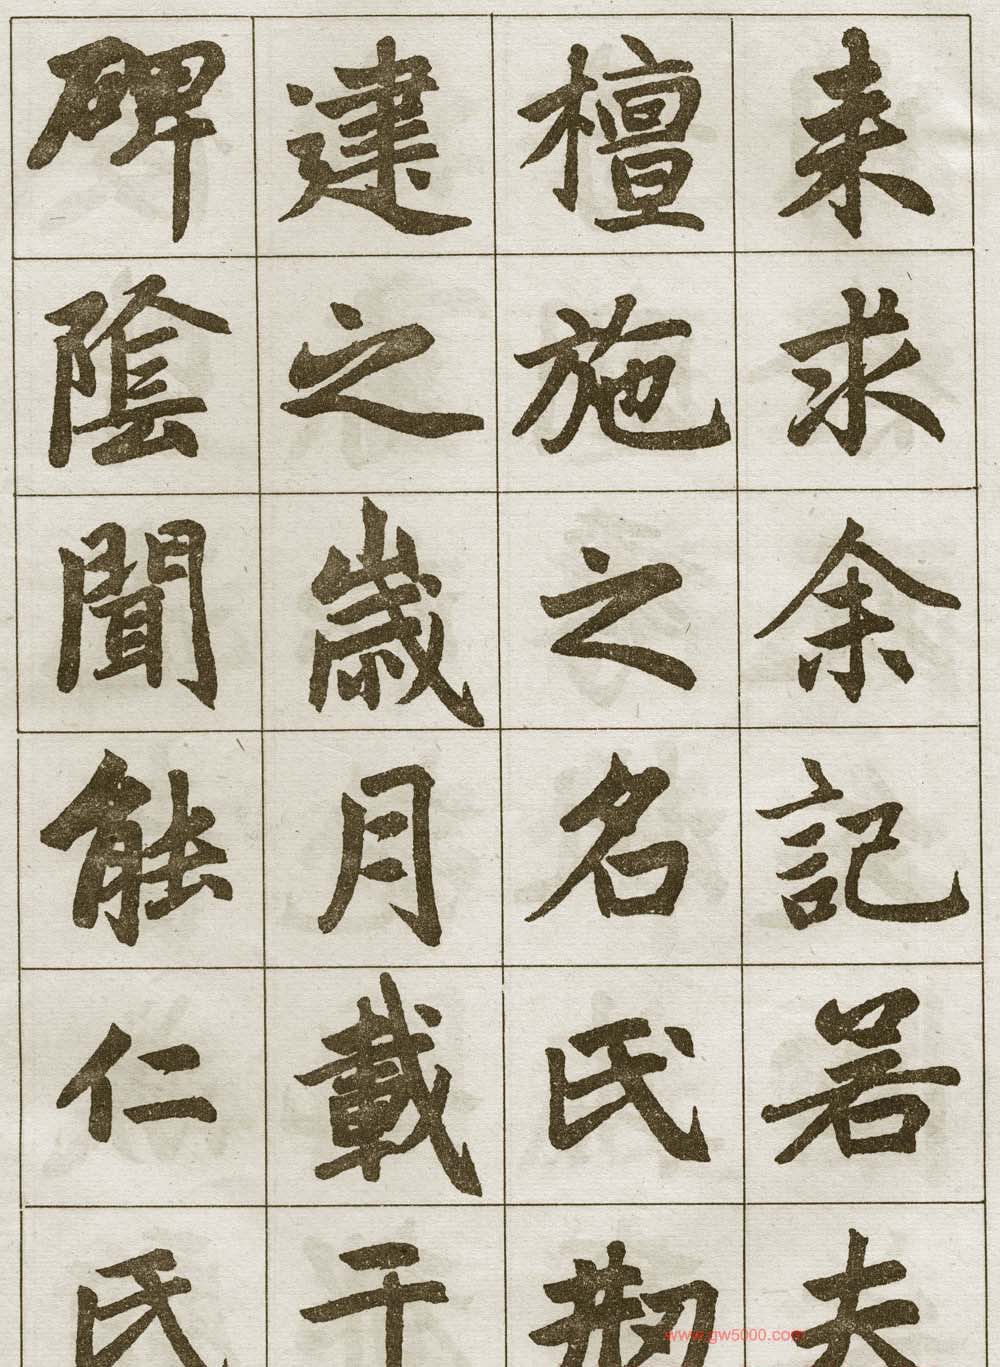 来求余記若夫
檀施之名氏剏
建之歲月載于
碑陰聞能仁氏
www.gw5000.com